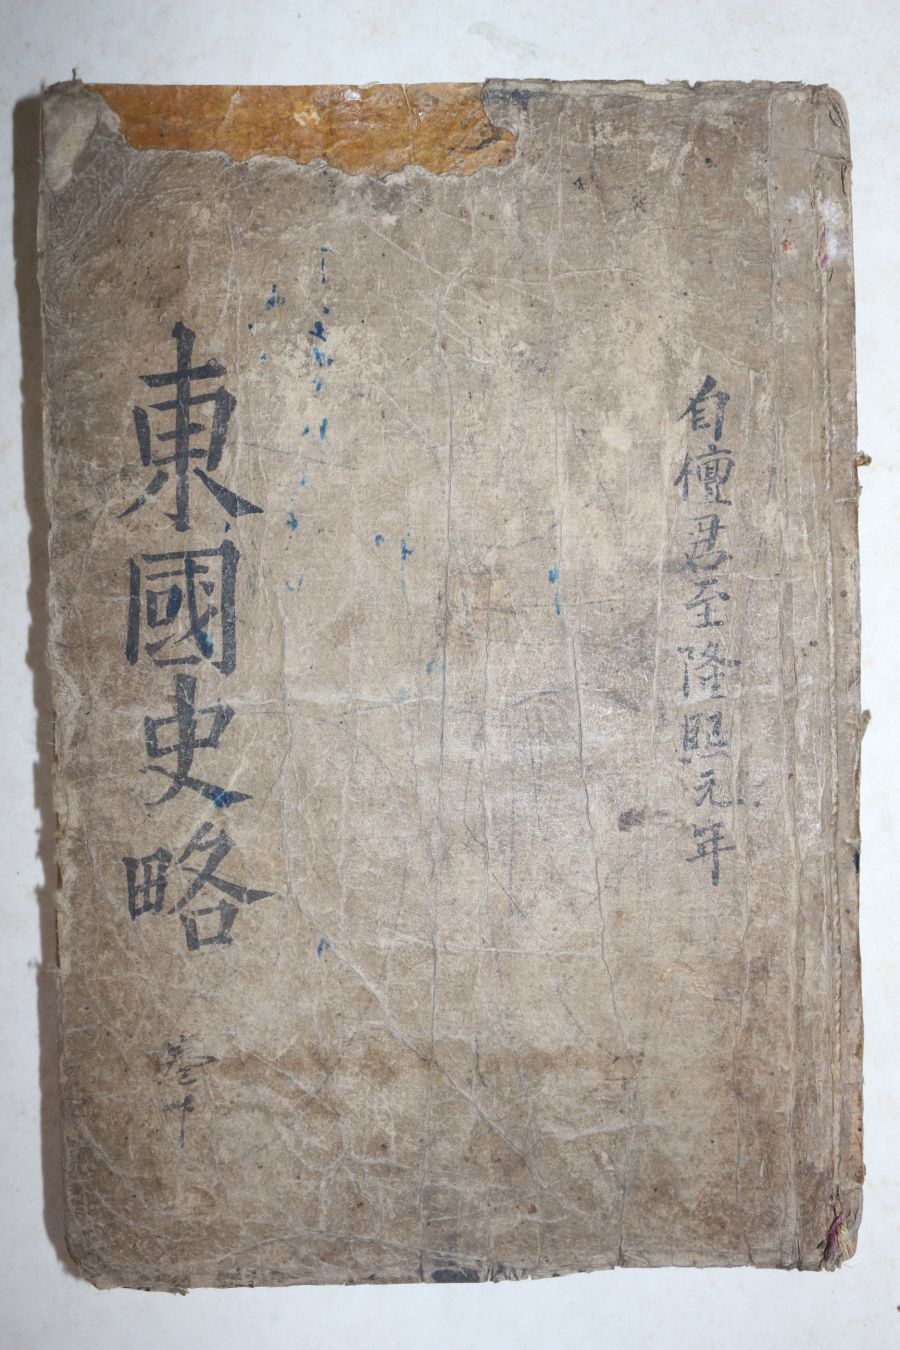 自檀君至隆熙元年
東國史略